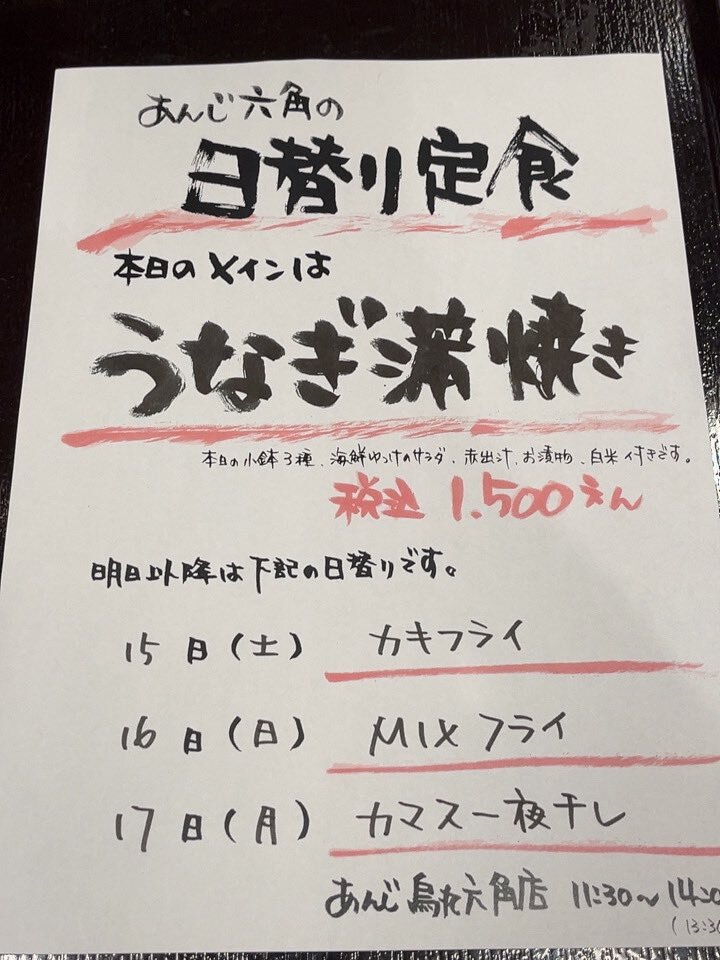 あんじ六角の
日替り定食
本日のメインは
うなぎ蒲焼き
本日の小鉢3種、海鮮ゆっけのサラダ、赤出汁、お漬物、白米 付きです。
税込 1.500えん
明日以降は下記の日替りです。
15日(土) カキフライ
16日(日) MIXフライ
17日(月) カマス一夜干し
あんじ烏丸六角店 11:30〜14:00
(13:30